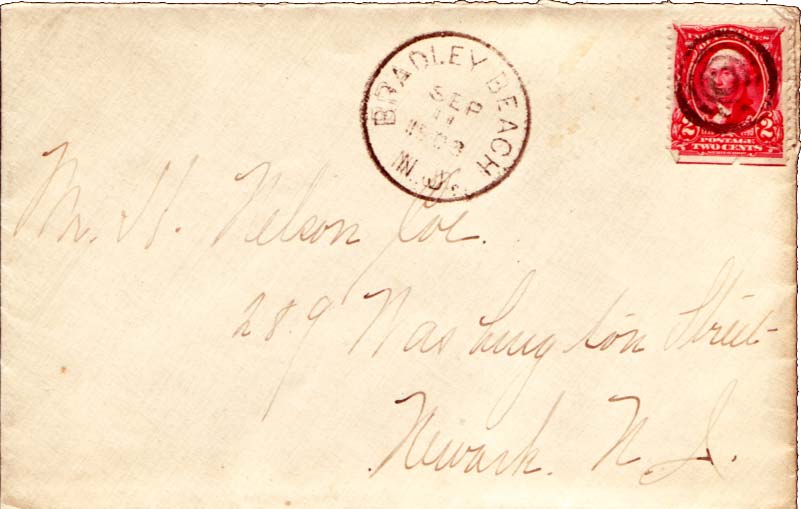 BRADLEY BEACH
SEP
11
N. J.
UNITED STATES
2 2
POSTAGE
TWO CENTS
Mr. H. Nelson Coe.
289 Washington Street
Newark. N. J.